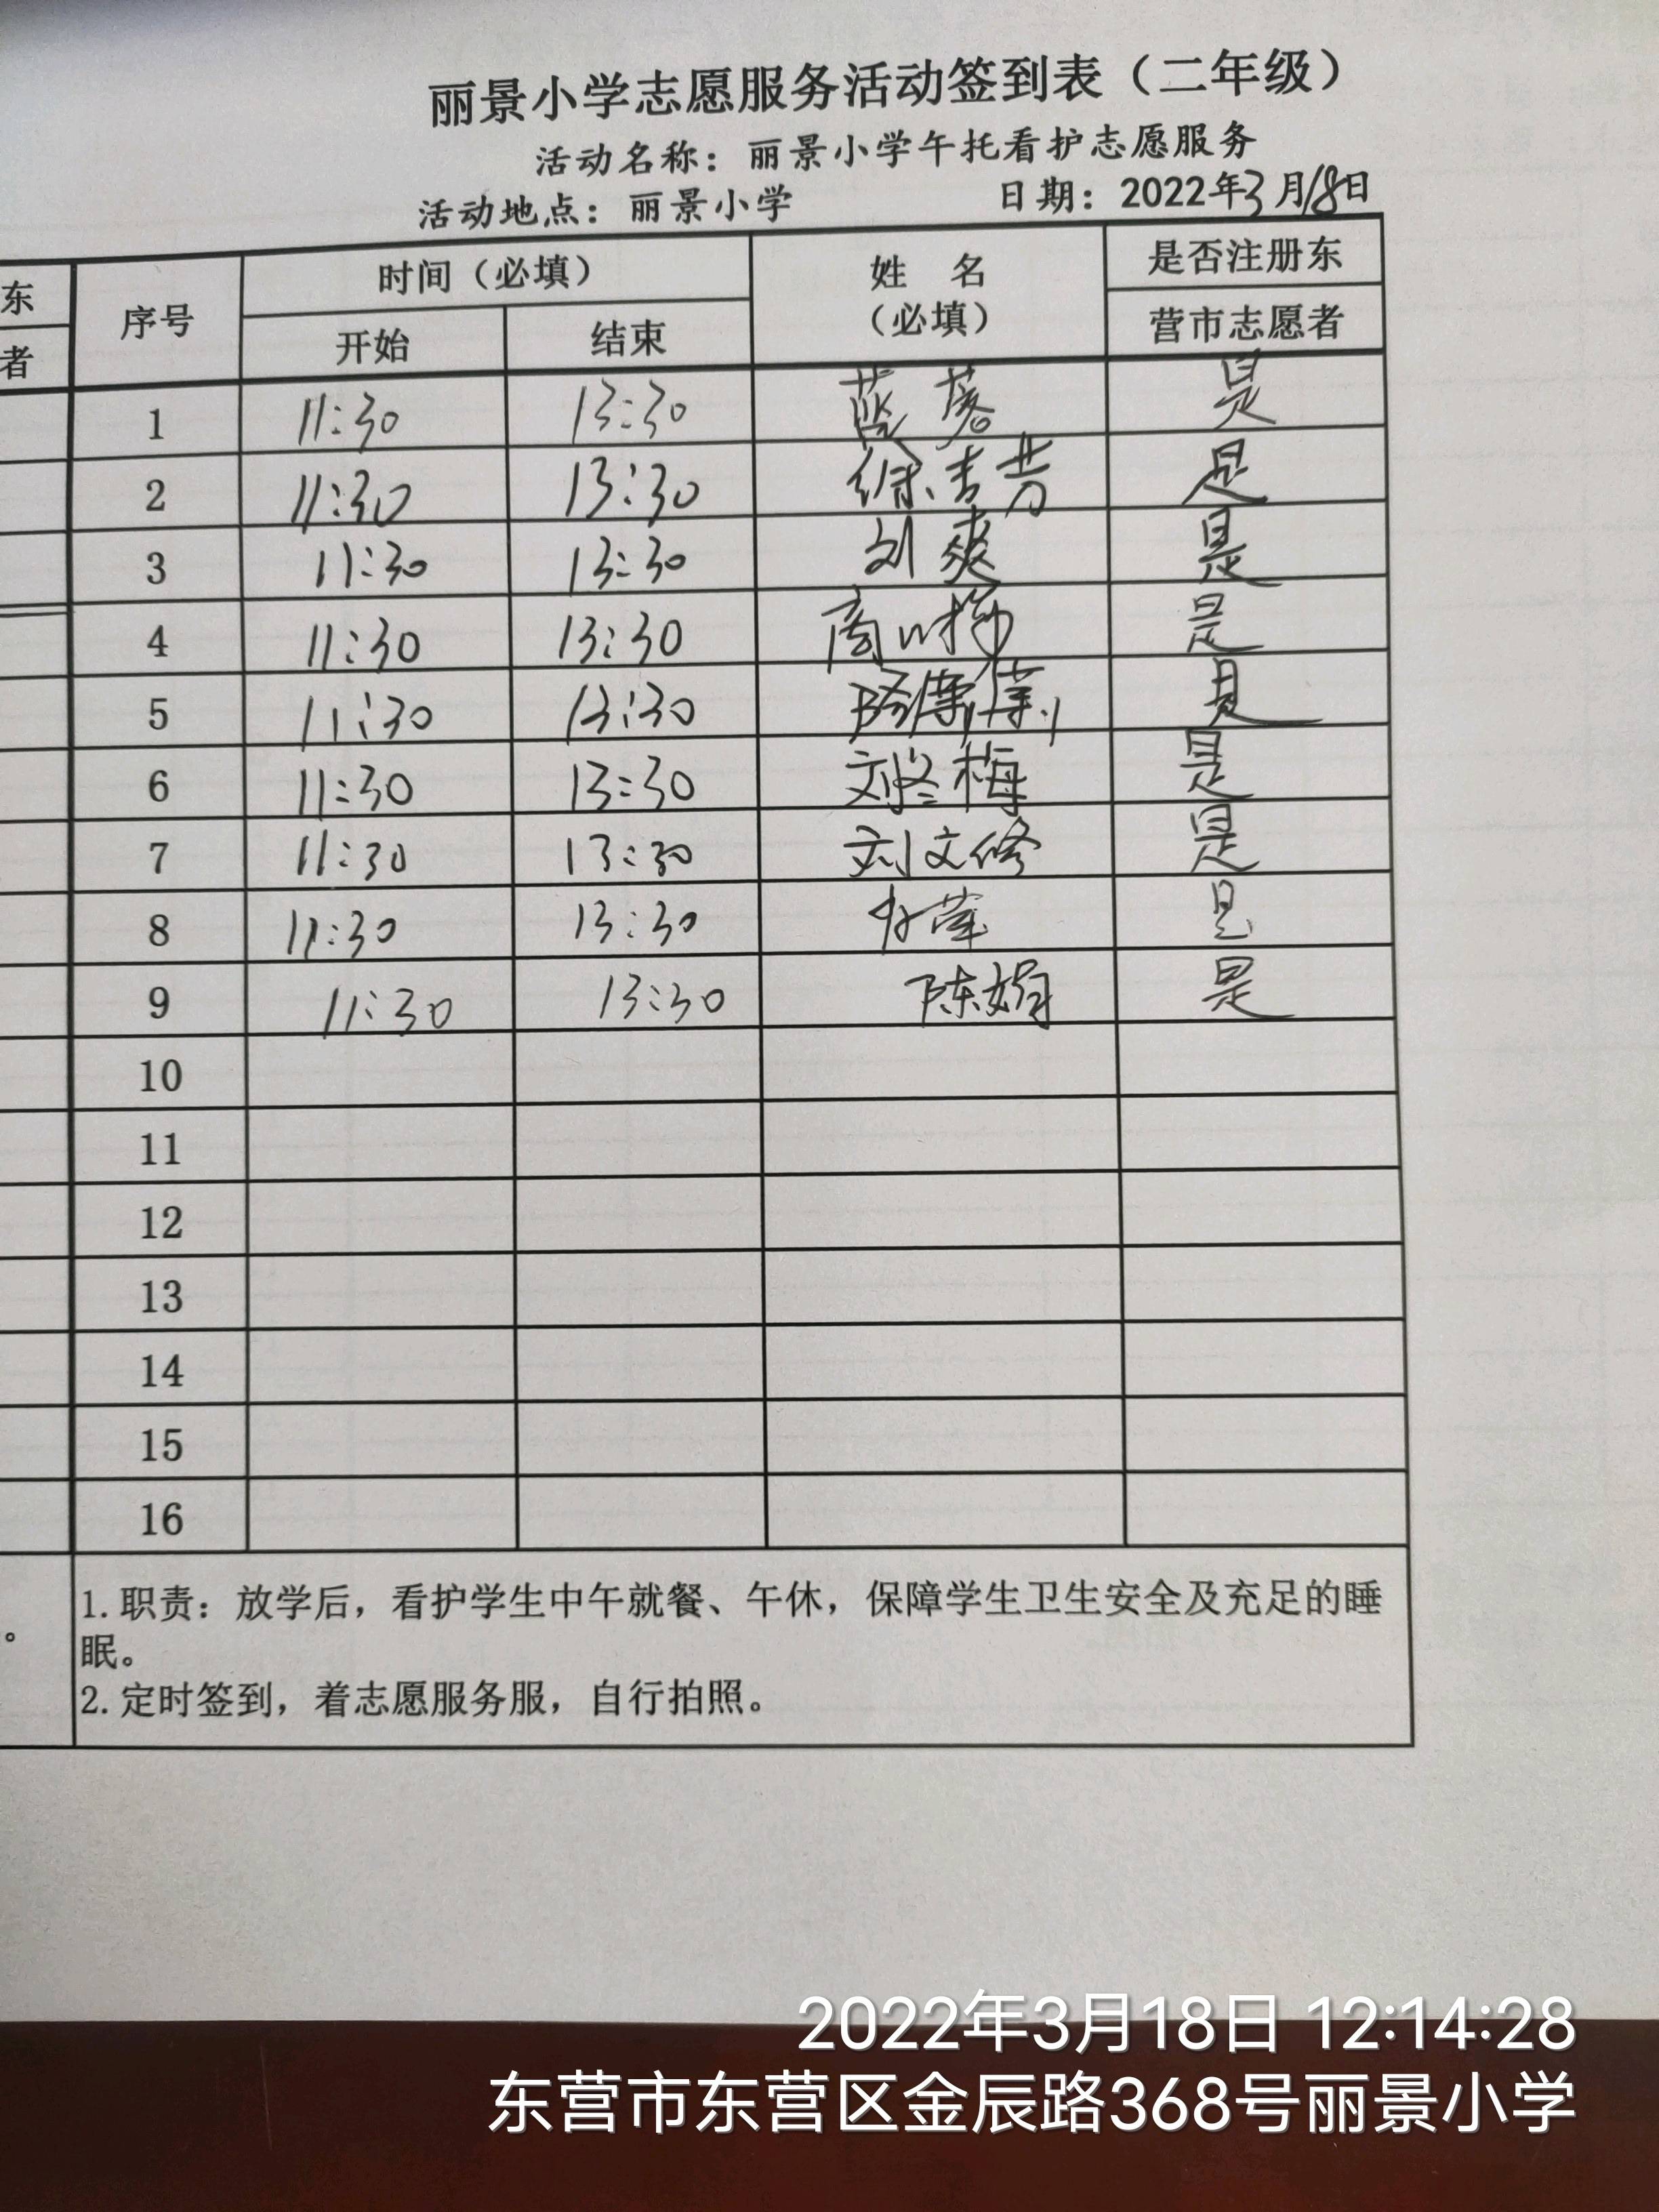 丽景小学志愿服务活动签到表（二年级）
活动名称：丽景小学午托看护志愿服务
活动地点：丽景小学 日期：2022年3月18日
东
者
序号 时间（必填） 姓 名 是否注册东
开始 结束 （必填） 营市志愿者
1 11:30 13:30 是
2 11:30 13:30 徐吉芳 是
3 11:30 13:30 刘爽 是
4 11:30 13:30 是
5 11:30 13:30 是
6 11:30 13:30 刘冬梅 是
7 11:30 13:30 刘文修 是
8 11:30 13:30 是
9 11:30 13:30 陈娟 是
10
11
12
13
14
15
16
。
1.职责：放学后，看护学生中午就餐、午休，保障学生卫生安全及充足的睡
眠。
2.定时签到，着志愿服务服，自行拍照。
2022年3月18日 12:14:28
东营市东营区金辰路368号丽景小学